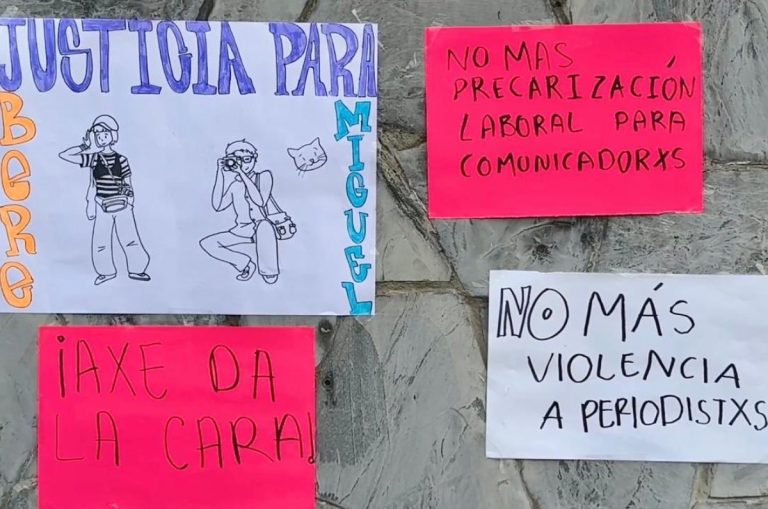 JUSTICIA PARA
BERE
MIGUEL
NO MAS
PRECARIZACIÓN
LABORAL PARA
COMUNICADORXS
¡AXE DA
LA CARA!
NO MÁS
VIOLENCIA
A PERIODISTXS